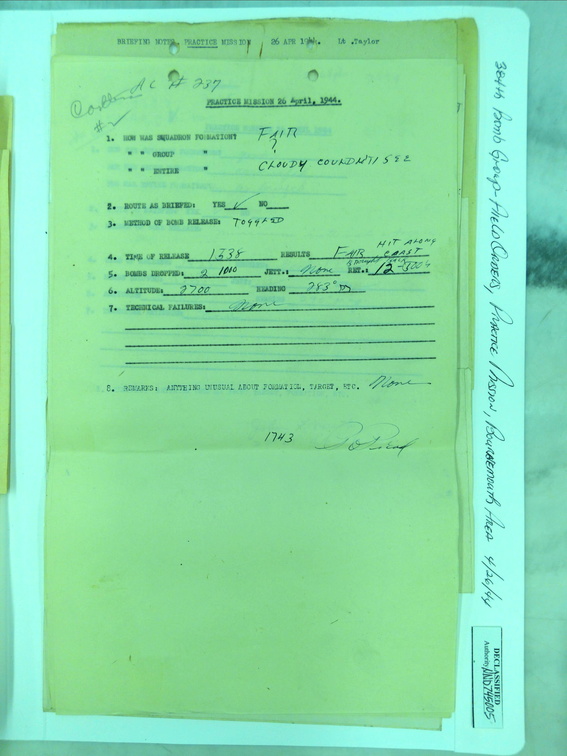 BRIEFING NOTES, PRACTICE MISSION 26 APR 1944. Lt .Taylor
AC # 237
#2
PRACTICE MISSION 26 April, 1944.
1. HOW WAS SQUADRON FORMATION? FAIR
" " GROUP " ?
" " ENTIRE " CLOUDY COULDN'T SEE
2. ROUTE AS BRIEFED: YES ✓ NO
3. METHOD OF BOMB RELEASE: TOGGLED
4. TIME OF RELEASE 1338 RESULTS FAIR HIT ALONG COAST
5. BOMBS DROPPED: 2 JETT.: None RET.: 12-300#
6. ALTITUDE: 2700 HEADING 283°
7. TECHNICAL FAILURES: None
8. REMARKS: ANYTHING UNUSUAL ABOUT FORMATION, TARGET, ETC. None
1743
384th Bomb Group-Field Orders, Practice Mission, Bournemouth Area 4/26/44
DECLASSIFIED
Authority NND745005